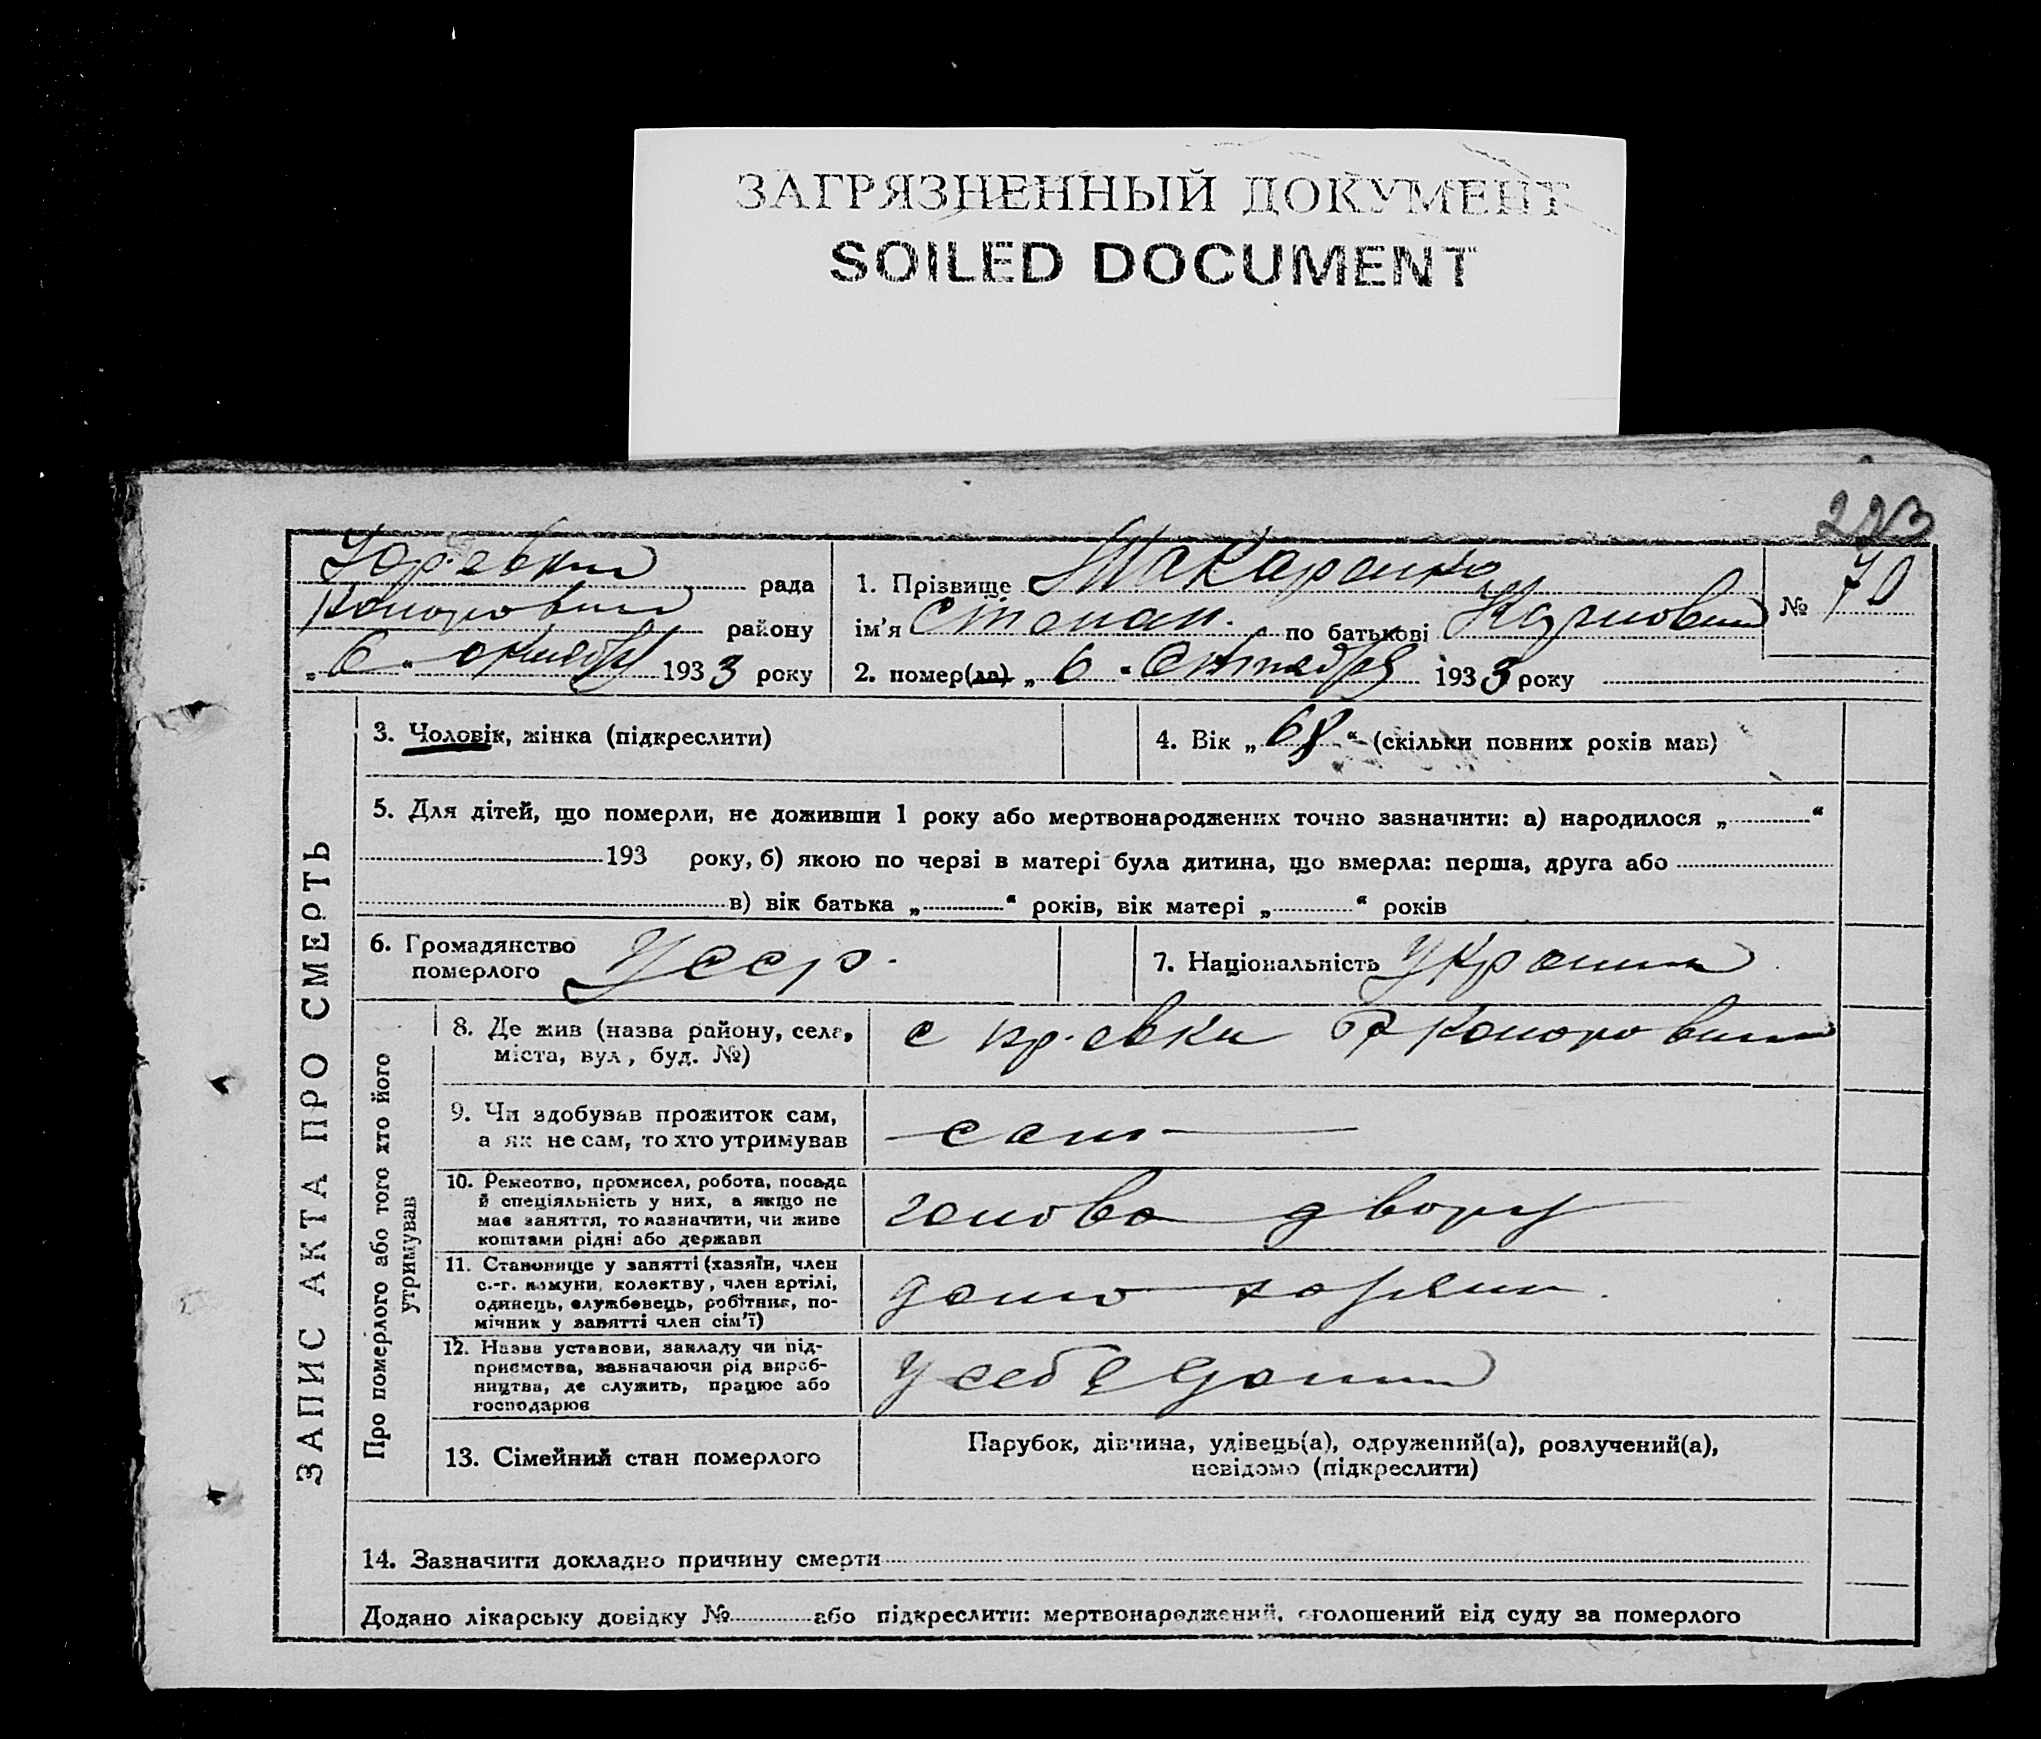 ЗАГРЯЗНЕННЫЙ ДОКУМЕНТ
SOILED DOCUMENT
223
Юр.евки рада
району
„6“ октября 1933 року
1. Прізвище Макаренко
ім'я Степан. по батькові Карпович
2. помер(ла) „6“ Октября 1933 року
№ 70
ЗАПИС АКТА ПРО СМЕРТЬ
3. Чоловік, жінка (підкреслити)
4. Вік „68“ (скільки повних років мав)
5. Для дітей, що померли, не доживши 1 року або мертвонароджених точно зазначити: а) народилося „ “
193 року, б) якою по черзі в матері була дитина, що вмерла: перша, друга або
в) вік батька „ “ років, вік матері „ “ років
6. Громадянство
померлого Усср.
7. Національність Украин
Про померлого або того хто його
утримував
8. Де жив (назва району, села,
міста, вул, буд. №)
с Юр.евки Р
9. Чи здобував прожиток сам,
а як не сам, то хто утримував
сам
10. Ремество, промисел, робота, посада
й спеціяльність у них, а якщо не
має заняття, то зазначити, чи живе
коштами рідні або держави
голова двору
11. Становище у занятті (хазяїн, член
с.-г. комуни, колектву, член артілі,
одинець, службовець, робітник, по-
мічник у занятті член сім'ї)
домо хазяин.
12. Назва установи, закладу чи під-
приємства, зазначаючи рід вироб-
ництва, де служить, працює або
господарює
У себе дома
13. Сімейний стан померлого
Парубок, дівчина, удівець(а), одружений(а), розлучений(а),
невідомо (підкреслити)
14. Зазначити докладно причину смерти
Додано лікарську довідку № або підкреслити: мертвонароджений, оголошений від суду за померлого